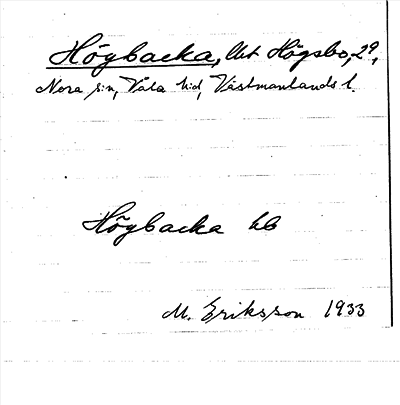 Högbacka, lht Högsbo, 2⁹,
Nora sn, Våla hd, Västmanlands l.
Högbacka hb
M. Eriksson 1933